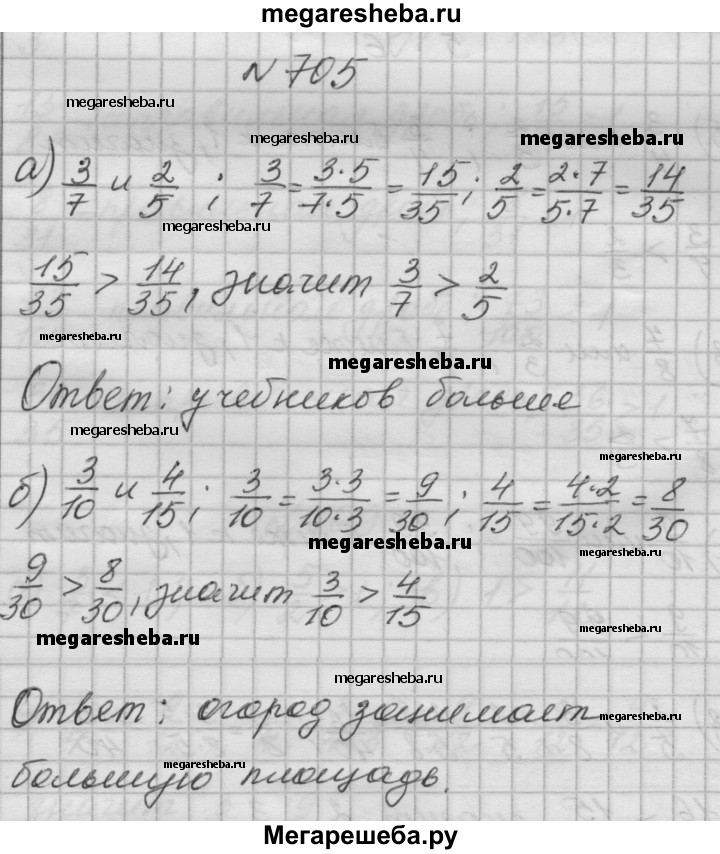 megaresheba.ru
№ 705
megaresheba.ru
megaresheba.ru
megaresheba.ru
а) 3/7 и 2/5 ; 3/7 = 3·5/7·5 = 15/35 ; 2/5 = 2·7/5·7 = 14/35
megaresheba.ru
15/35 > 14/35, значит 3/7 > 2/5
megaresheba.ru
megaresheba.ru
Ответ: учебников больше
megaresheba.ru
megaresheba.ru
б) 3/10 и 4/15 ; 3/10 = 3·3/10·3 = 9/30 ; 4/15 = 4·2/15·2 = 8/30
megaresheba.ru
megaresheba.ru
9/30 > 8/30, значит 3/10 > 4/15
megaresheba.ru
megaresheba.ru
megaresheba.ru
Ответ: огород занимает
megaresheba.ru
megaresheba.ru
большую площадь.
megaresheba.ru
Мегарешеба.ру